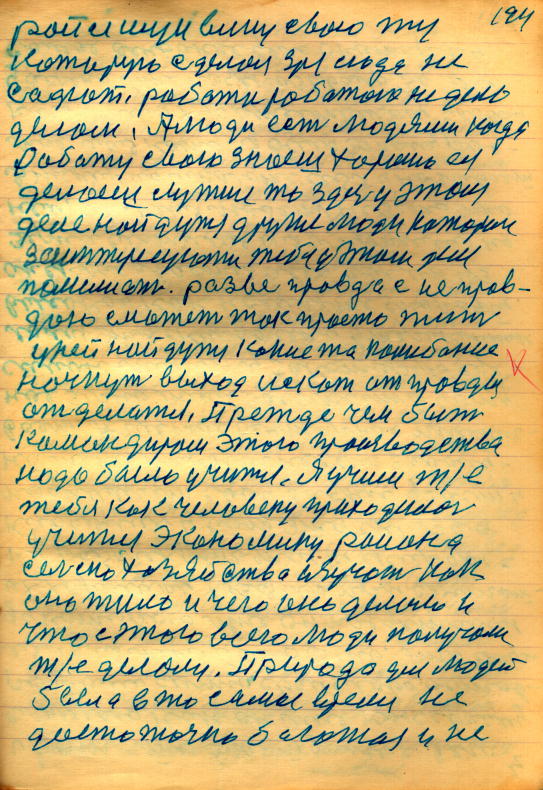 194
свою ту
которую сделал
садют. работу работать не день
делом. А люди ест людями когда
работу свою знаеш хорошо ей
делаеш лутше то здес у этом
деле найдутся други люди которы
тебя у этом
понимат. разве правда с неправ-
дою сможет так просто жит
у ней найдутся какие та
начнут выход искат от правды
отделатся. Прежде чем быт
командиром этого производства
надо было учится. я учил
тебя как человеку приходилос
учится экономику района
селско хозяйства изучат как
оно жило и чего оно делало и
что с этого всего люди получали
делали. Природа для людей
была в то самое время не
достаточно богатая и не